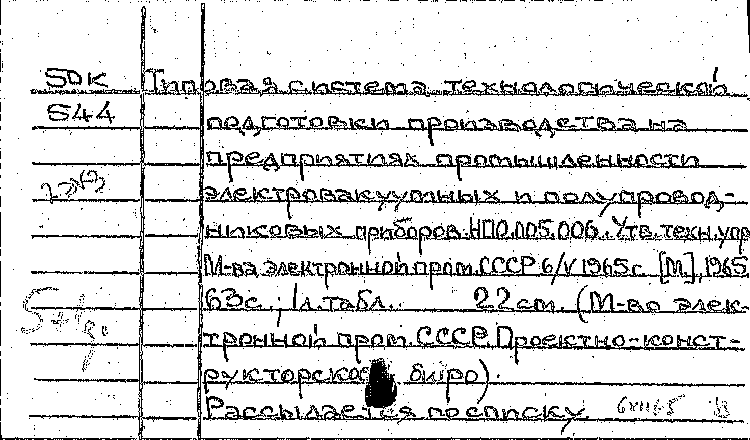 50к Типовая система технологической
544 подготовки производства на
предприятиях промышленности
электровакуумных и полупровод-
никовых приборов. НП0.005.006. Утв. техн. упр
М-ва электронной пром. СССР 6/V 1965г. [М.], 1965
63с.; 1л. табл. 22см. (М-во элек-
тронной пром. СССР. Проектно-конст-
рукторское бюро).
Рассылается по списку